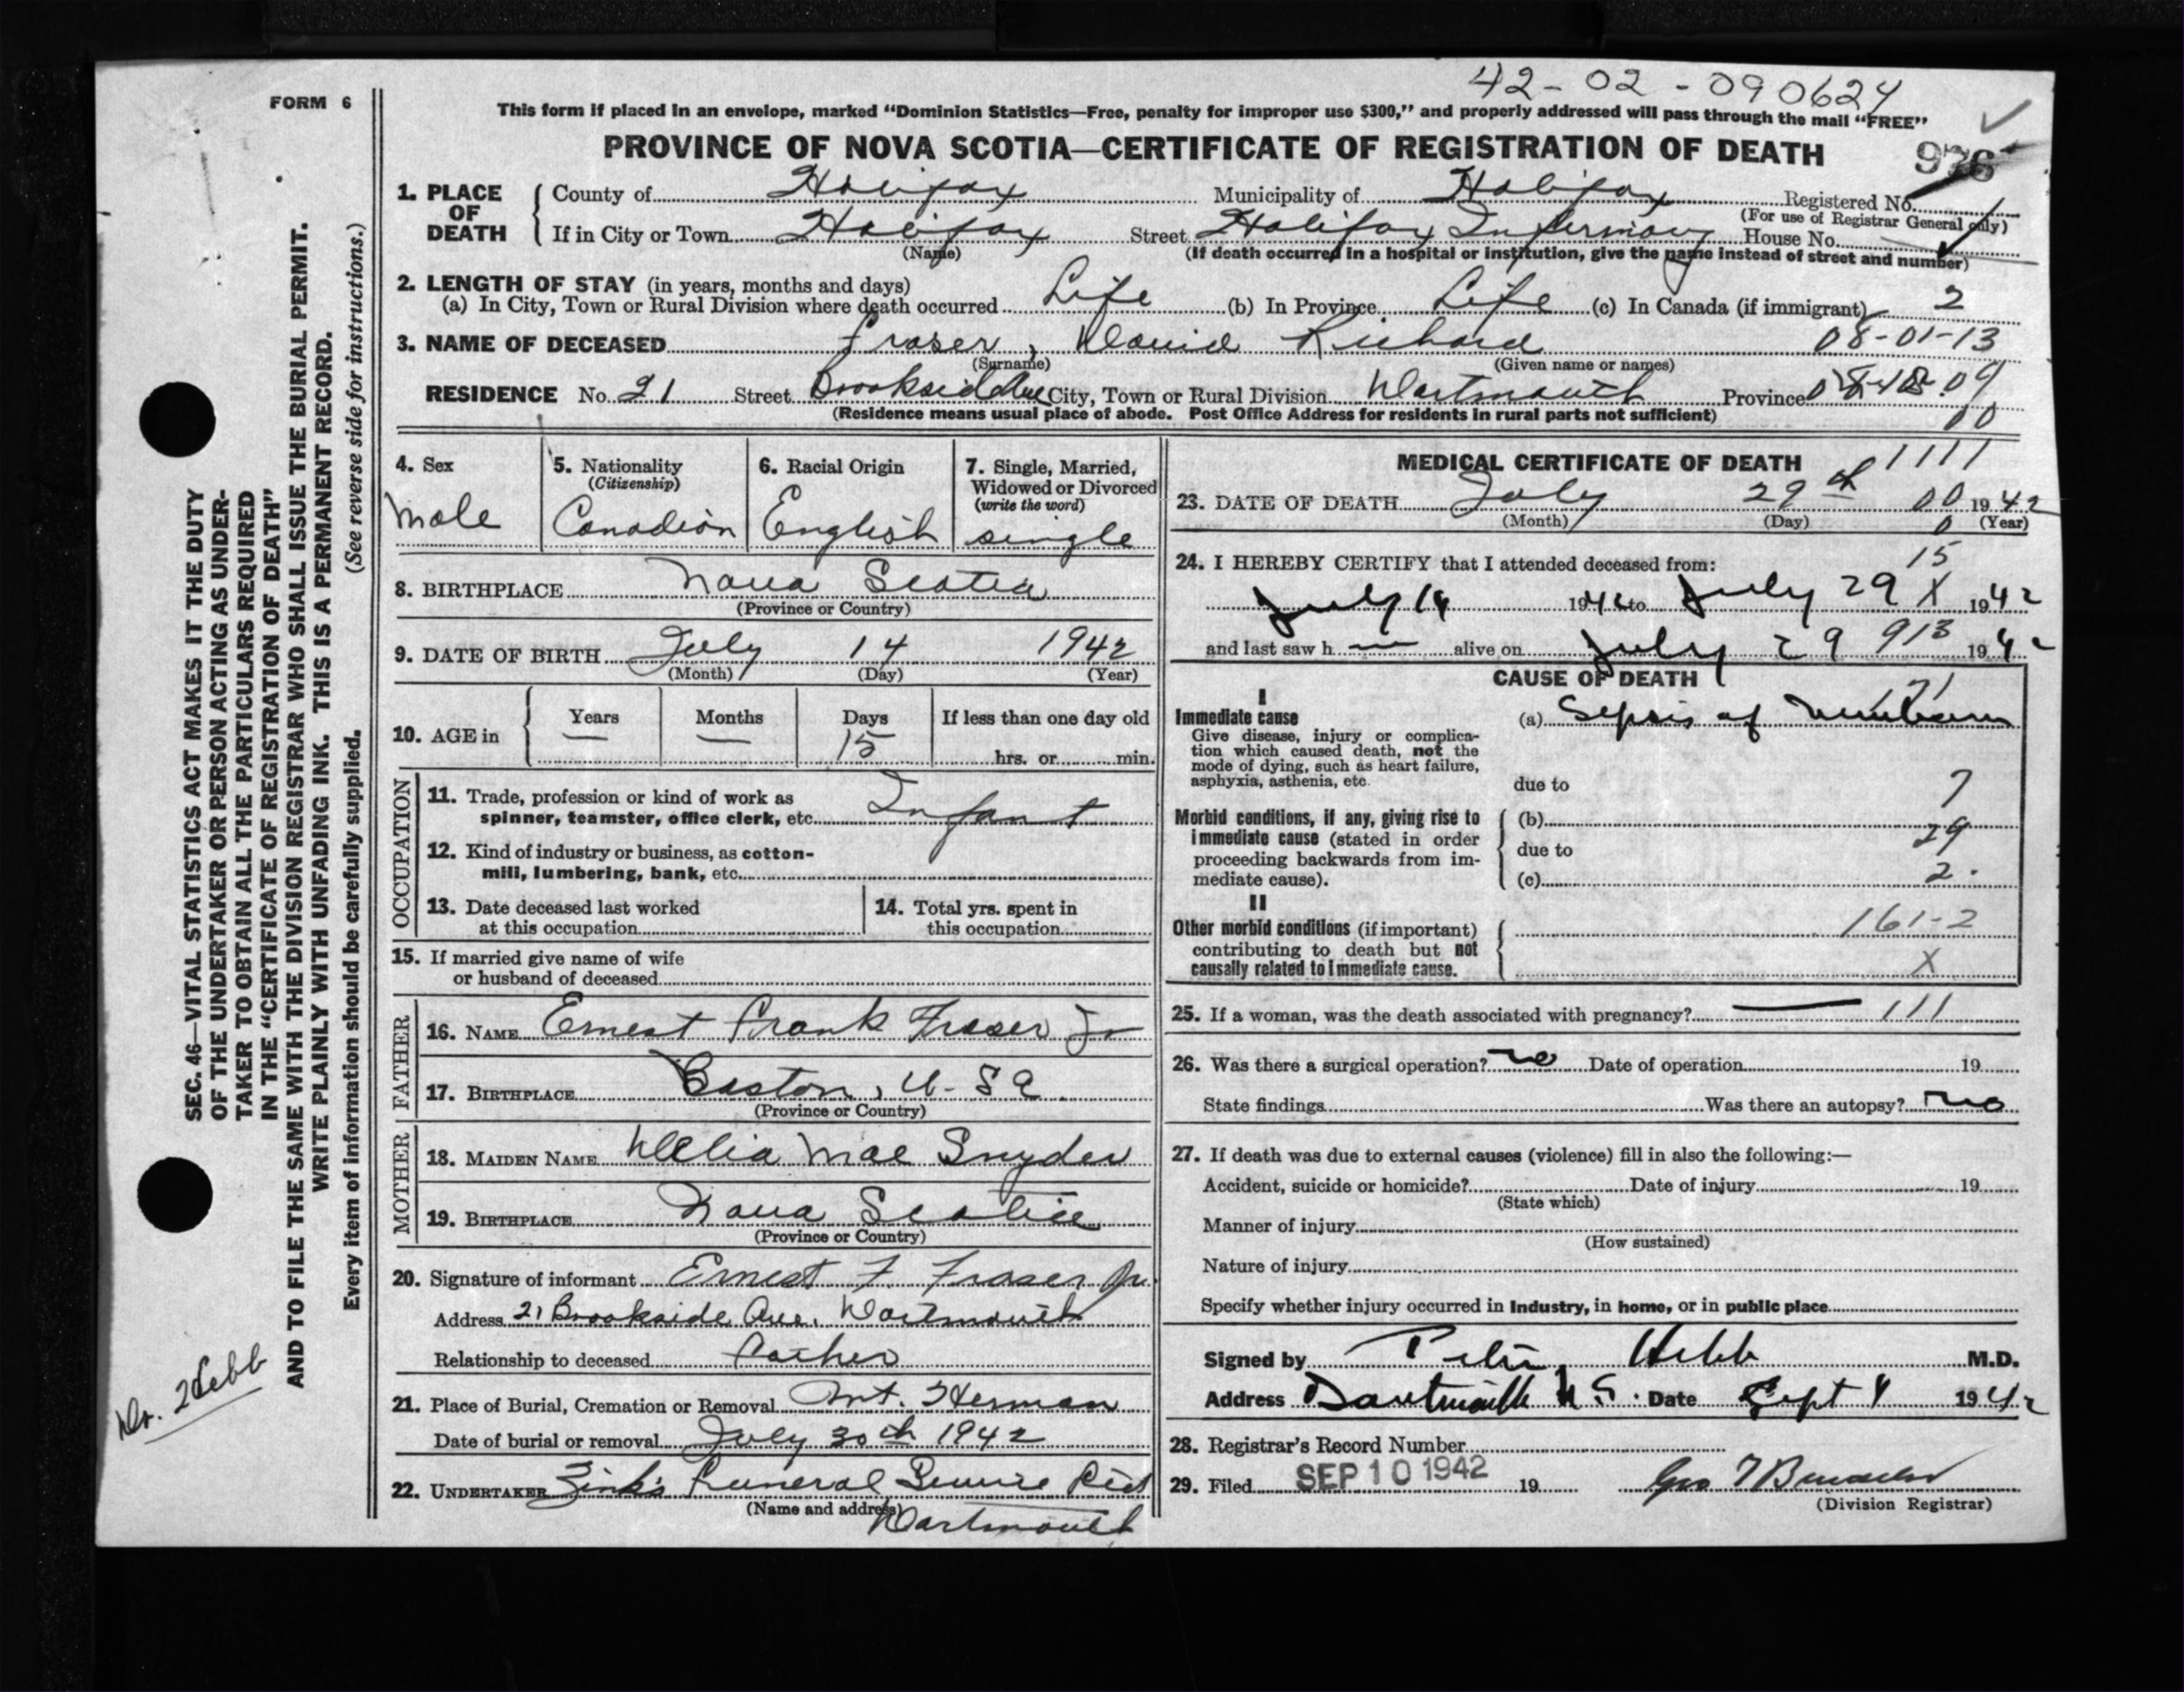 42-02-090624
FORM 6
This form if placed in an envelope, marked "Dominion Statistics—Free, penalty for improper use $300," and properly addressed will pass through the mail "FREE"
PROVINCE OF NOVA SCOTIA—CERTIFICATE OF REGISTRATION OF DEATH
1. PLACE OF DEATH County of Halifax Municipality of Halifax Registered No.
(For use of Registrar General only)
If in City or Town Halifax Street Halifax Infirmary House No.
(Name) (If death occurred in a hospital or institution, give the name instead of street and number)
2. LENGTH OF STAY (in years, months and days)
(a) In City, Town or Rural Division where death occurred Life (b) In Province Life (c) In Canada (if immigrant) 2
3. NAME OF DECEASED Fraser, David Richard 08-01-13
(Surname) (Given name or names)
RESIDENCE No. 21 Street Brookside Ave City, Town or Rural Division Dartmouth Province
(Residence means usual place of abode. Post Office Address for residents in rural parts not sufficient) 00
4. Sex
Male
5. Nationality
(Citizenship)
Canadian
6. Racial Origin
English
7. Single, Married,
Widowed or Divorced
(write the word)
single
8. BIRTHPLACE Nova Scotia
(Province or Country)
9. DATE OF BIRTH July 14 1942
(Month) (Day) (Year)
10. AGE in Years — Months — Days 15 If less than one day old
hrs. or min.
OCCUPATION
11. Trade, profession or kind of work as
spinner, teamster, office clerk, etc. Infant
12. Kind of industry or business, as cotton-
mill, lumbering, bank, etc.
13. Date deceased last worked
at this occupation
14. Total yrs. spent in
this occupation
15. If married give name of wife
or husband of deceased
FATHER
16. NAME Ernest Frank Fraser Jr
17. BIRTHPLACE Boston, U.S.A.
(Province or Country)
MOTHER
18. MAIDEN NAME Delia Mae Snyder
19. BIRTHPLACE Nova Scotia
(Province or Country)
20. Signature of informant Ernest F. Fraser Jr.
Address 21 Brookside Ave. Dartmouth
Relationship to deceased Father
21. Place of Burial, Cremation or Removal Mt. Herman
Date of burial or removal July 30th 1942
22. UNDERTAKER Zink's Funeral Service
(Name and address) Dartmouth
MEDICAL CERTIFICATE OF DEATH 1111
23. DATE OF DEATH July 29th 00 1942
(Month) (Day) 0 (Year)
24. I HEREBY CERTIFY that I attended deceased from: 15
July 14 1942 to July 29 X 1942
and last saw h alive on July 29 913 1942
CAUSE OF DEATH
I
Immediate cause (a) Sepsis of newborn
Give disease, injury or complica-
tion which caused death, not the
mode of dying, such as heart failure,
asphyxia, asthenia, etc. due to 7
Morbid conditions, if any, giving rise to (b)
immediate cause (stated in order due to 29
proceeding backwards from im-
mediate cause). (c) 2.
II
Other morbid conditions (if important) 161-2
contributing to death but not
causally related to immediate cause. X
25. If a woman, was the death associated with pregnancy? — 111
26. Was there a surgical operation? no Date of operation 19
State findings Was there an autopsy? no
27. If death was due to external causes (violence) fill in also the following:—
Accident, suicide or homicide? Date of injury 19
(State which)
Manner of injury
(How sustained)
Nature of injury
Specify whether injury occurred in Industry, in home, or in public place
Signed by Peter Hebb M.D.
Address Dartmouth N.S. Date Sept 4 1942
28. Registrar's Record Number
29. Filed SEP 10 1942 19
(Division Registrar)
SEC. 46—VITAL STATISTICS ACT MAKES IT THE DUTY
OF THE UNDERTAKER OR PERSON ACTING AS UNDER-
TAKER TO OBTAIN ALL THE PARTICULARS REQUIRED
IN THE "CERTIFICATE OF REGISTRATION OF DEATH"
AND TO FILE THE SAME WITH THE DIVISION REGISTRAR WHO SHALL ISSUE THE BURIAL PERMIT.
WRITE PLAINLY WITH UNFADING INK. THIS IS A PERMANENT RECORD.
Every item of information should be carefully supplied. (See reverse side for instructions.)
Dr. Hebb